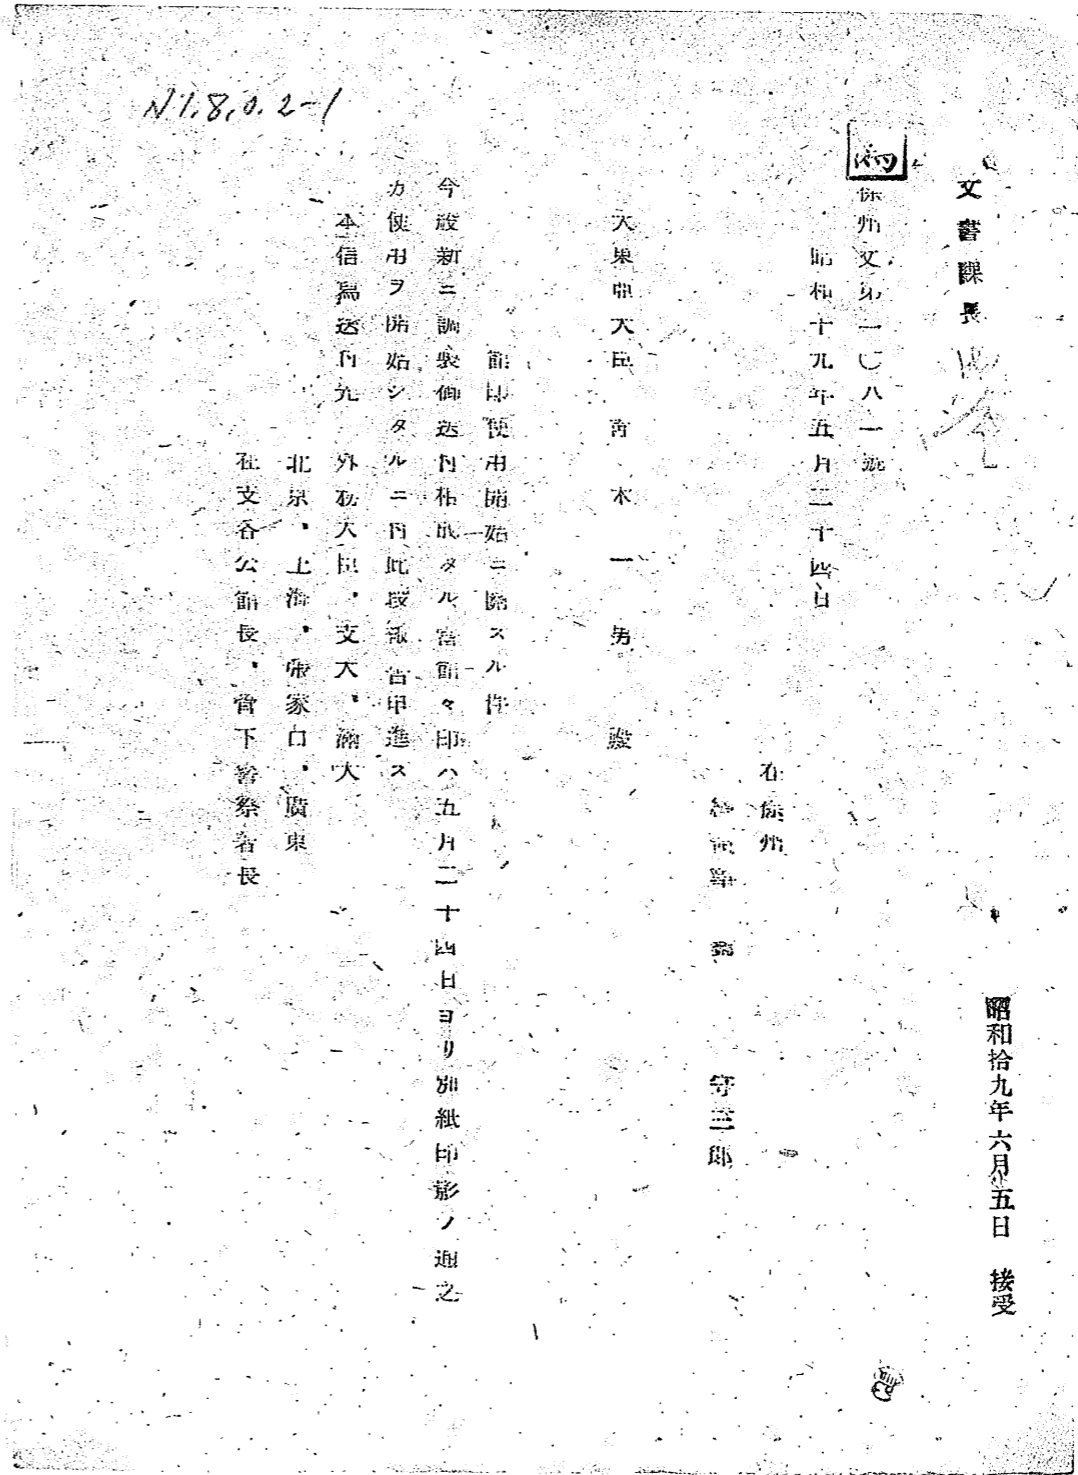 N1.8.0.2-1
昭和拾九年六月五日 接受
文書課長
徐州文第一〇八一號
昭和十九年五月二十四日
在徐州
守三郎
大東亞大臣 靑木一男 殿
館印使用開始ニ關スル件
今般新ニ調製御送付相成タル當館々印ハ五月二十四日ヨリ別紙印影ノ通之
カ使用ヲ開始シタルニ付此段報告申進ス
本信寫送付先 外務大臣、支大、滿大
北京、上海、張家口、廣東
在支各公館長、管下警察署長